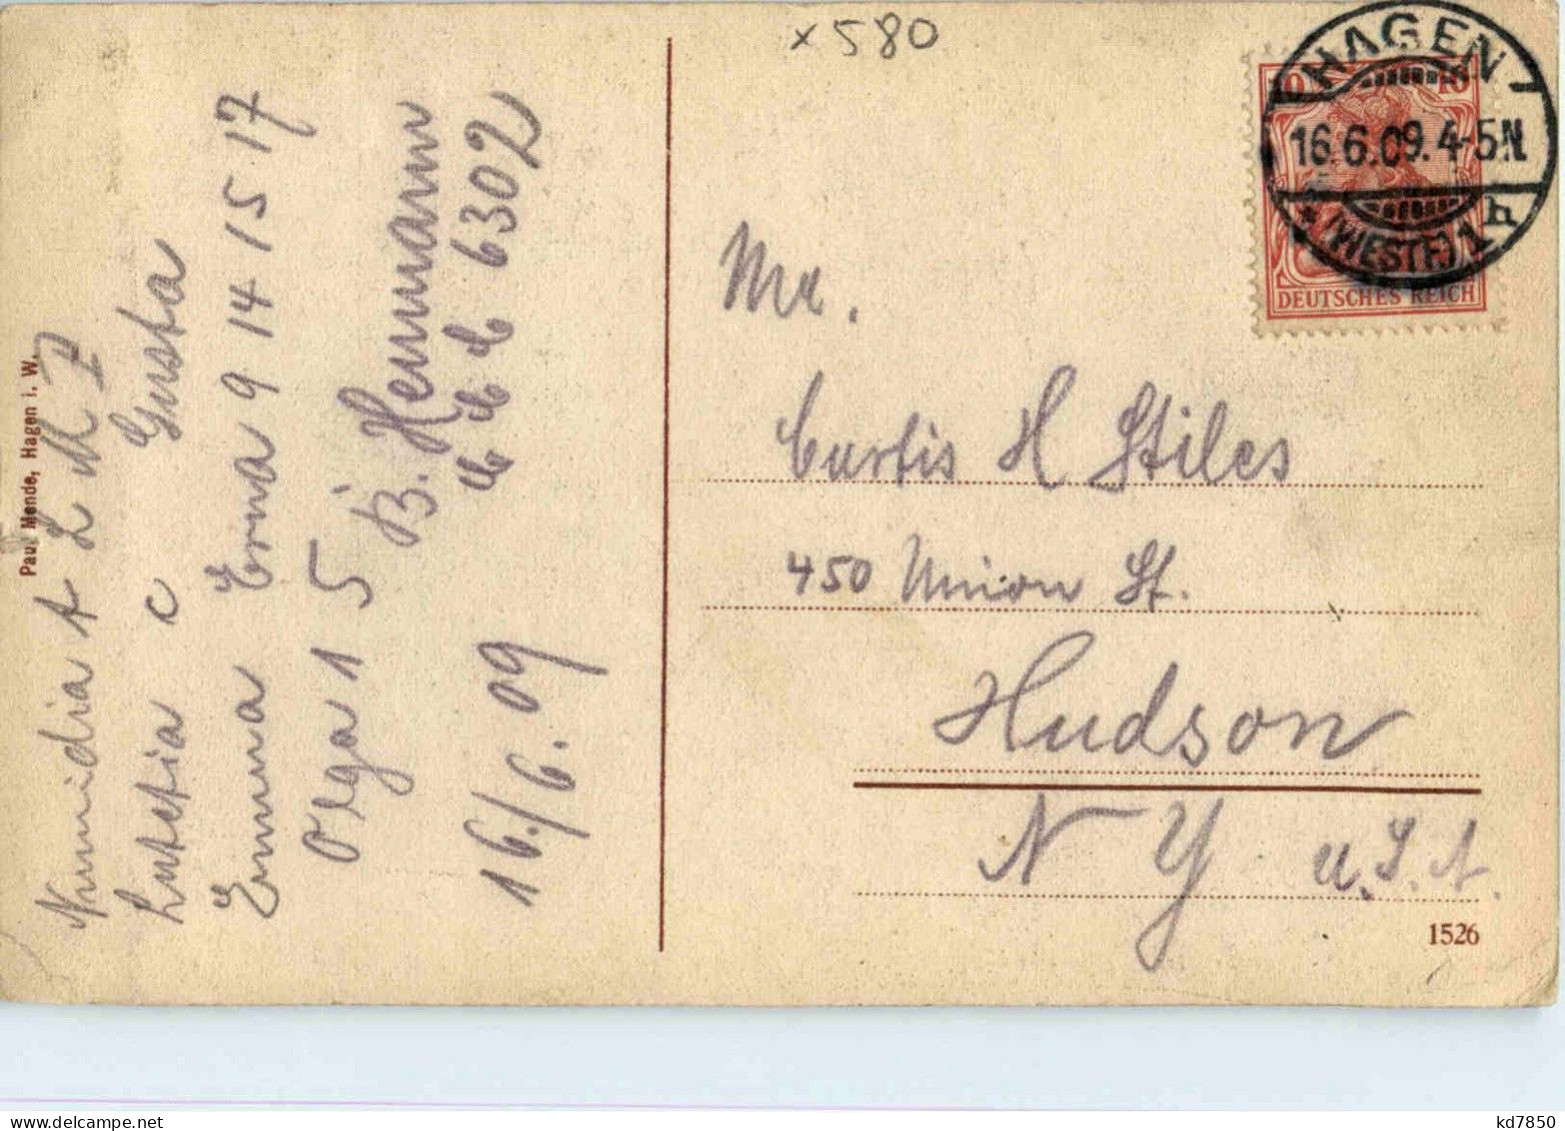 x 580
HAGEN
16.6.09.4-5N.
* (WESTF.) 1 h
10 10
DEUTSCHES REICH
Paul Mende, Hagen i. W.
Numidia A L M I
Lutetia c Gusta
Emma Erna 9 14 15 17
Olga 1 5
B. Heumann
16./6. 09 6302
Mr.
Curtis H Stiles
450 Union St.
Hudson
N Y U.S.A.
1526
kd7850